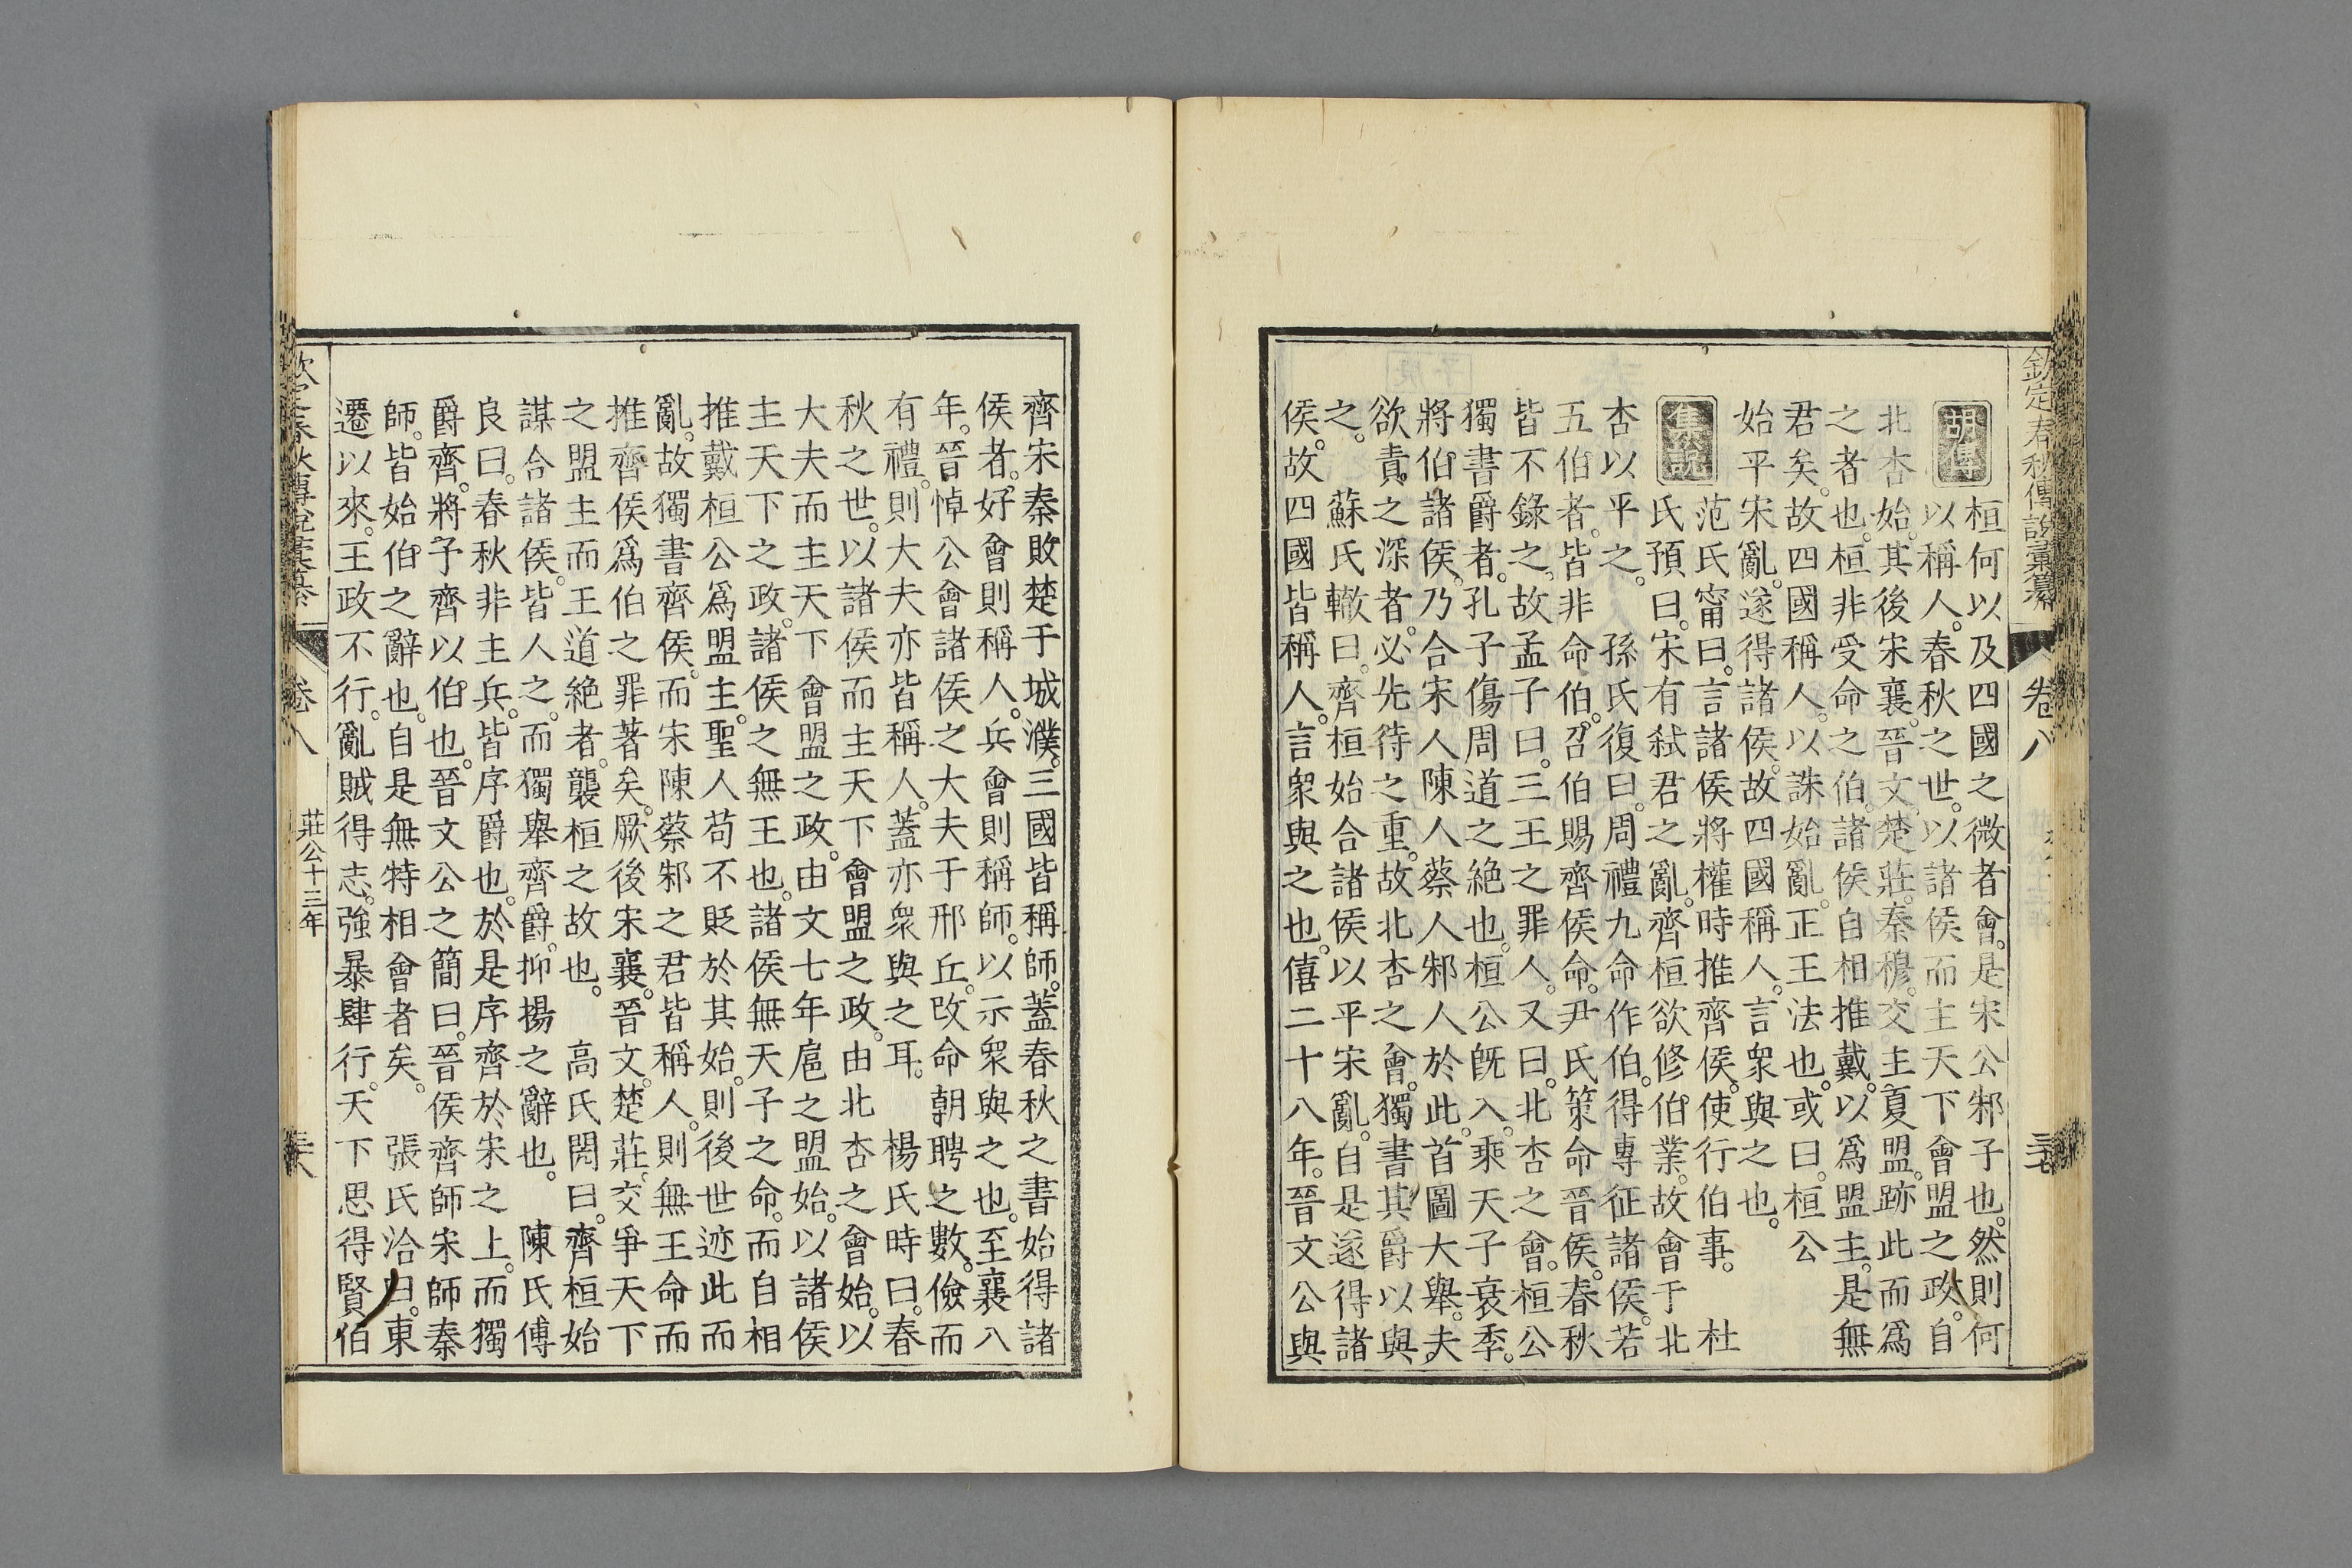 欽定春秋傳說彙纂 卷八 三七
胡傳
桓何以及四國之微者會。是宋公邾子也。然則何
以稱人。春秋之世。以諸侯而主天下會盟之政。自
北杏始。其後宋襄。晉文。楚莊。秦穆。交主夏盟。跡此而爲
之者也。桓非受命之伯。諸侯自相推戴。以爲盟主。是無
君矣。故四國稱人。以誅始亂。正王法也。或曰。桓公
始平宋亂。遂得諸侯。故四國稱人。言衆與之也。
集說
范氏甯曰。言諸侯將權時推齊侯。使行伯事。 杜
氏預曰。宋有弒君之亂。齊桓欲修伯業。故會于北
杏以平之。 孫氏復曰。周禮九命作伯。得專征諸侯。若
五伯者。皆非命伯。召伯賜齊侯命。尹氏策命晉侯。春秋
皆不錄之。故孟子曰。三王之罪人。又曰。北杏之會。桓公
獨書爵者。孔子傷周道之絶也。桓公旣入。乘天子衰季。
將伯諸侯。乃合宋人陳人蔡人邾人於此。首圖大舉。夫
欲責之深者。必先待之重。故北杏之會。獨書其爵以與
之。 蘇氏轍曰。齊桓始合諸侯以平宋亂。自是遂得諸
侯。故四國皆稱人。言衆與之也。僖二十八年。晉文公與
齊宋秦敗楚于城濮。三國皆稱師。蓋春秋之書始得諸
侯者。好會則稱人。兵會則稱師。以示衆與之也。至襄八
年。晉悼公會諸侯之大夫于邢丘。改命朝聘之數。儉而
有禮。則大夫亦皆稱人。蓋亦衆與之耳。 楊氏時曰。春
秋之世。以諸侯而主天下會盟之政。由北杏之會始。以
大夫而主天下會盟之政。由文七年扈之盟始。以諸侯
主天下之政。諸侯之無王也。諸侯無天子之命。而自相
推戴桓公爲盟主。聖人苟不貶於其始。則後世迹此而
亂。故獨書齊侯。而宋陳蔡邾之君皆稱人。則無王命而
推齊侯爲伯之罪著矣。厥後宋襄。晉文。楚莊。交爭天下
之盟主而王道絶者。襲桓之故也。 高氏閌曰。齊桓始
謀合諸侯。皆人之。而獨舉齊爵。抑揚之辭也。 陳氏傅
良曰。春秋非主兵。皆序爵也。於是序齊於宋之上。而獨
爵齊。將予齊以伯也。晉文公之簡曰。晉侯齊師宋師秦
師。皆始伯之辭也。自是無特相會者矣。 張氏洽曰。東
遷以來。王政不行。亂賊得志。強暴肆行。天下思得賢伯
欽定春秋傳說彙纂 卷八 莊公十三年 三八